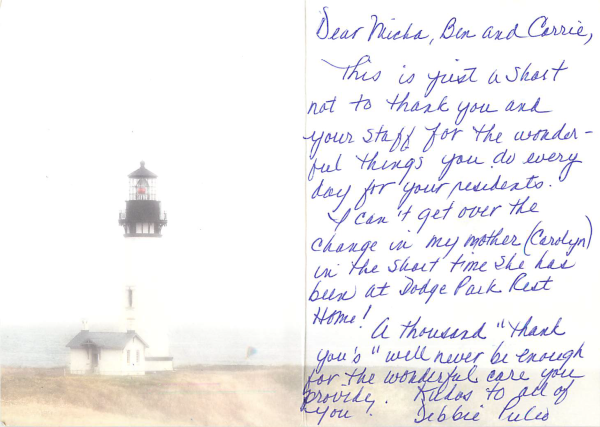 Dear Micha, Ben and Carrie,
This is just a short
not to thank you and
your staff for the wonder-
ful things you do every
day for your residents.
I can't get over the
change in my mother (Carolyn)
in the short time she has
been at Dodge Park Rest
Home!
A thousand "thank
you's" will never be enough
for the wonderful care you
provide. Kudos to all of
you! Debbie Puleo